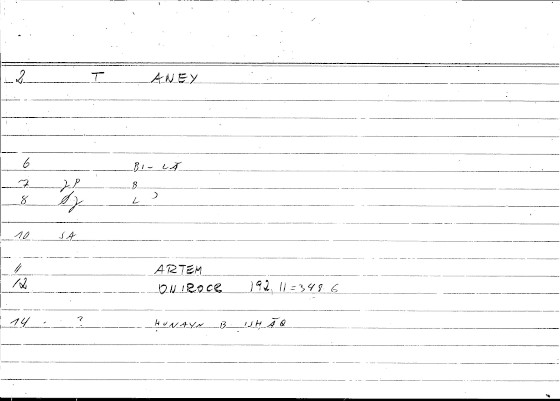 2 T ANEY
6 BI-LĀ
7 JP B
8 L
10 SA
11 ARTEM
12 ONIROCR 192,11=348 6
14 . ? HUNAYN B ISHĀQ